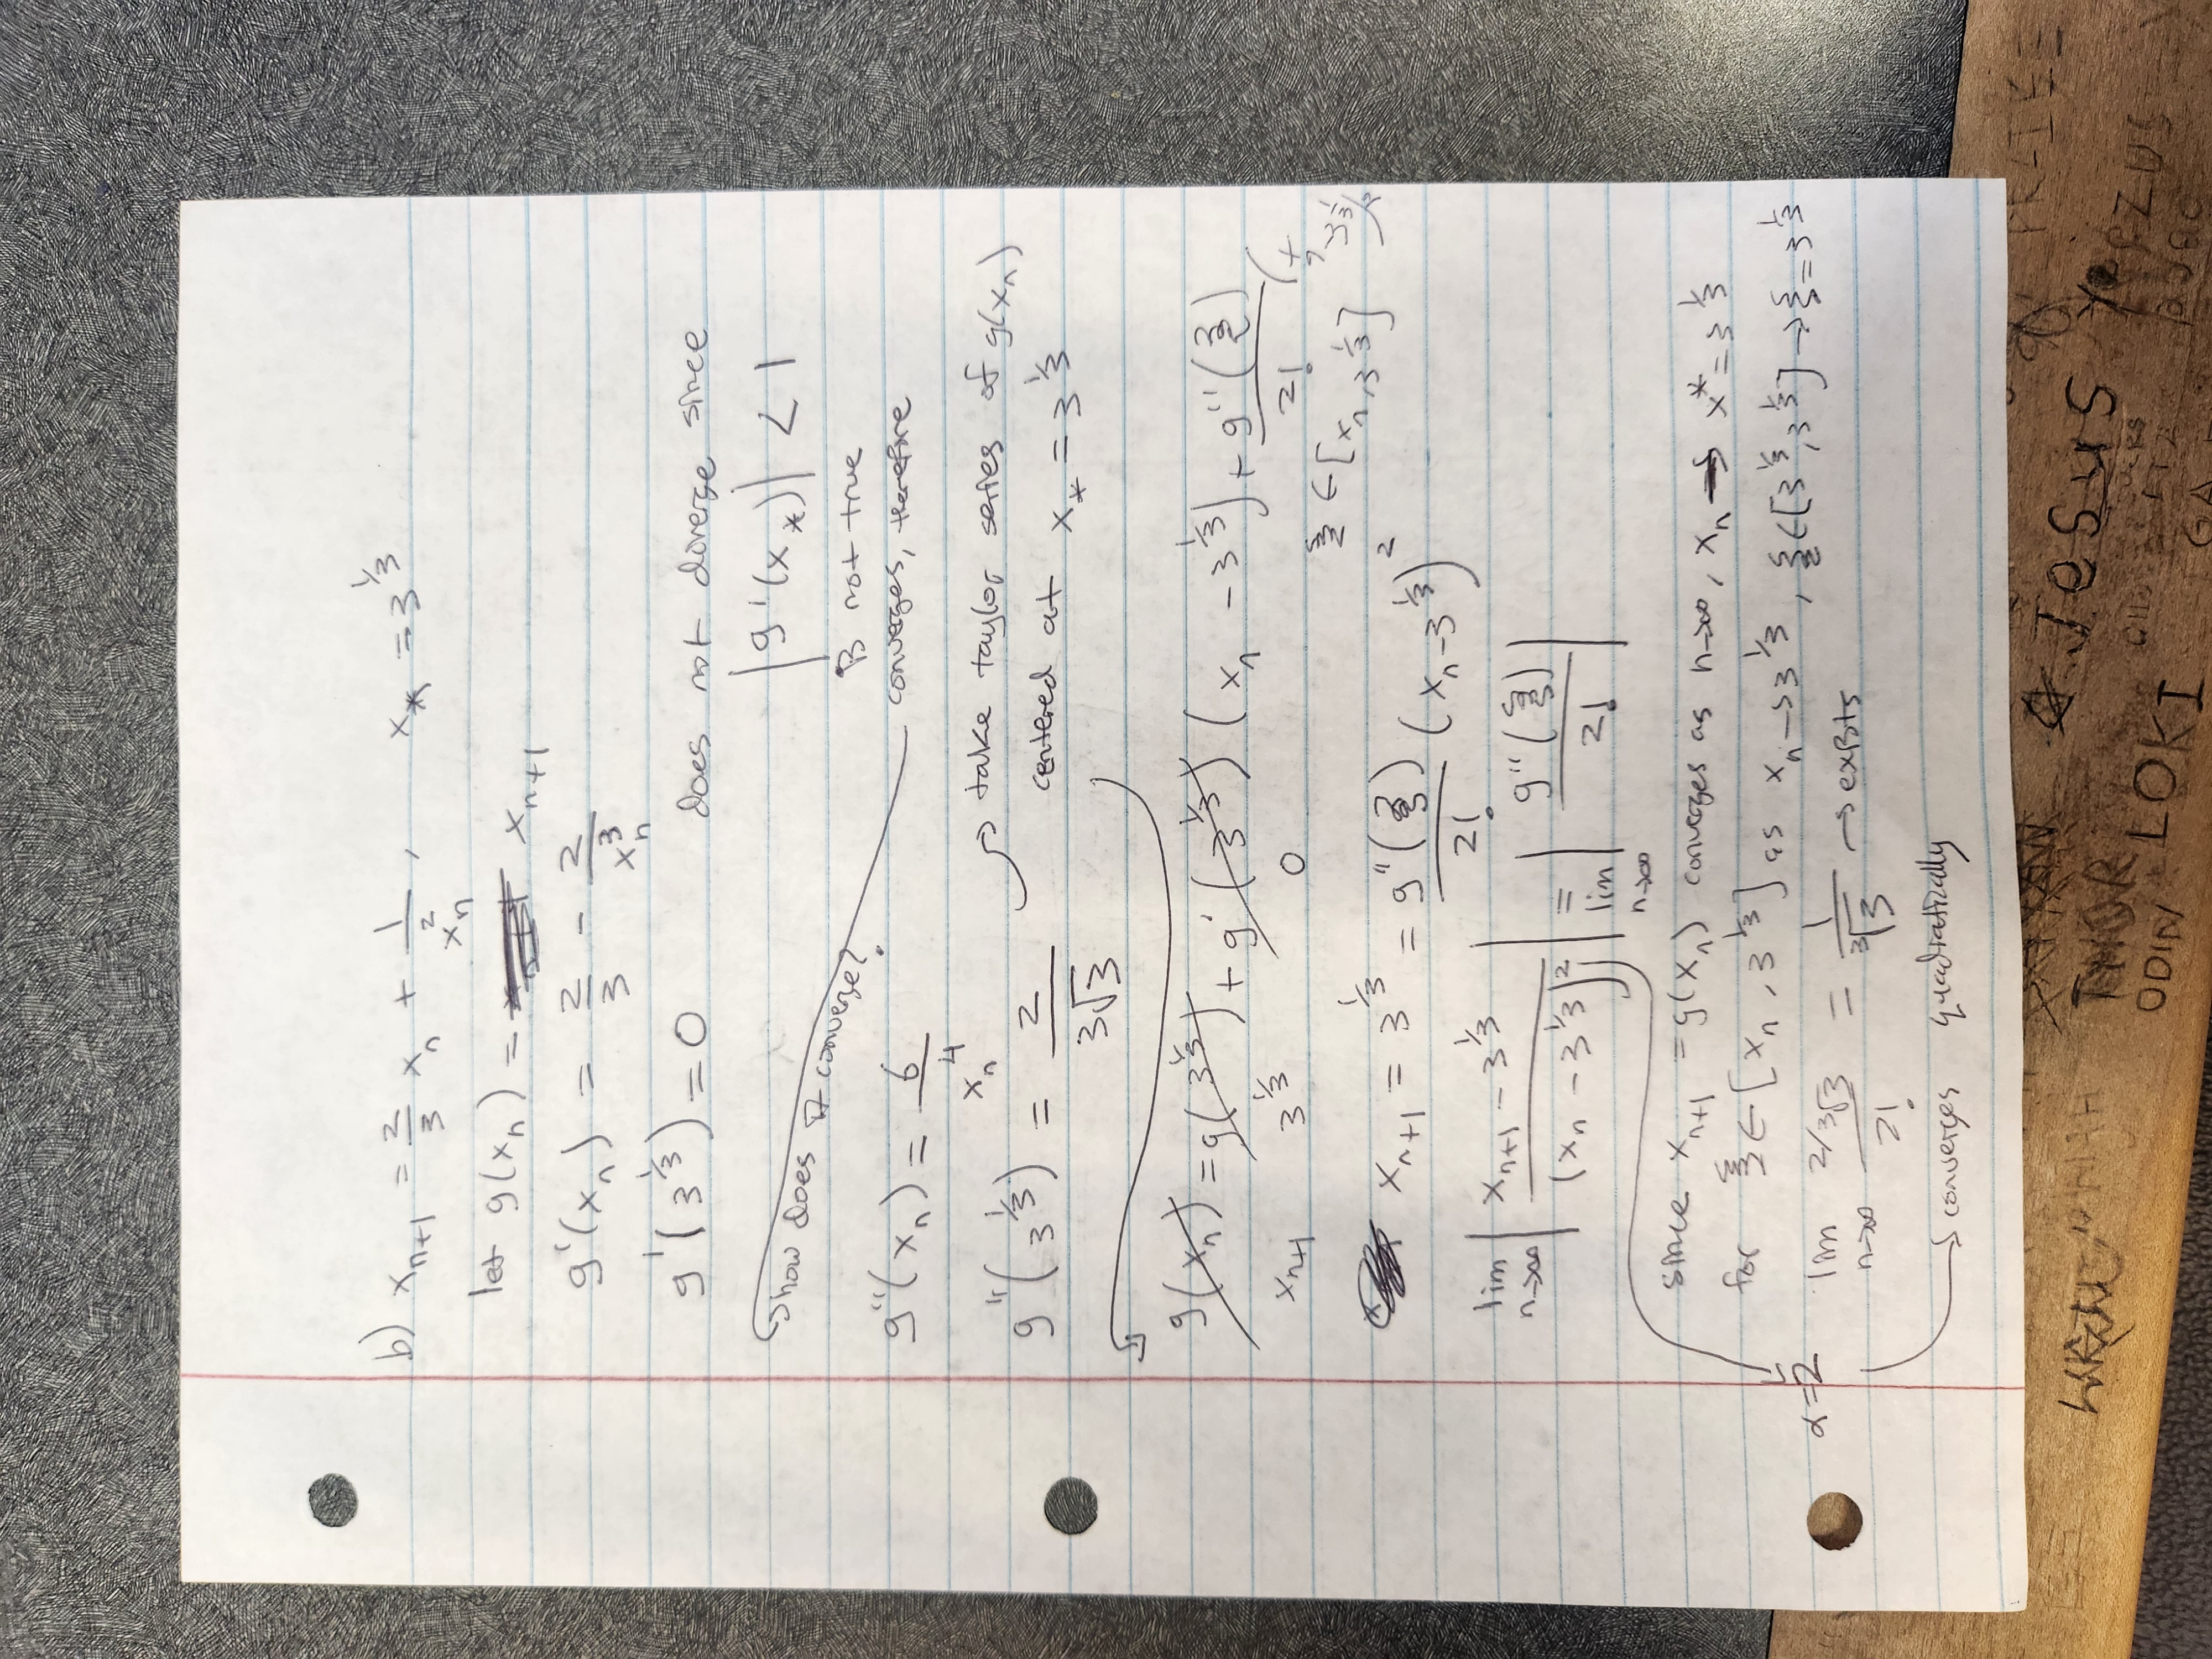 b) x_{n+1} = 2/3 x_n + 1/x_n^2 , x_* = 3^{1/3}
let g(x_n) = x_{n+1}
g'(x_n) = 2/3 - 2/x_n^3
g'(3^{1/3}) = 0 does not diverge since
|g'(x_*)| < 1
is not true
how does it converge?
converges, therefore
g''(x_n) = 6/x_n^4
g''(3^{1/3}) = 2/(3√3) → take taylor series of g(x_n)
centered at x_* = 3^{1/3}
g(x_n) = g(3^{1/3}) + g'(3^{1/3}) (x_n - 3^{1/3}) + g''(ξ)/2! (x_n - 3^{1/3})^2
x_{n+1} 3^{1/3} 0
ξ ∈ [x_n, 3^{1/3}]
x_{n+1} = 3^{1/3} = g''(ξ)/2! (x_n - 3^{1/3})^2
lim n→∞ |(x_{n+1} - 3^{1/3})/(x_n - 3^{1/3})^2| = lim n→∞ |g''(ξ)/2!|
since x_{n+1} = g(x_n) converges as n→∞, x_n → x^* = 3^{1/3}
for ξ ∈ [x_n, 3^{1/3}] as x_n → 3^{1/3}, ξ ∈ [3^{1/3}, 3^{1/3}] → ξ = 3^{1/3}
α = 2
lim n→∞ (2/∛3)/2! = 1/∛3 → exists
→ converges quadratically
Jesus
THOR
ODIN LOKI